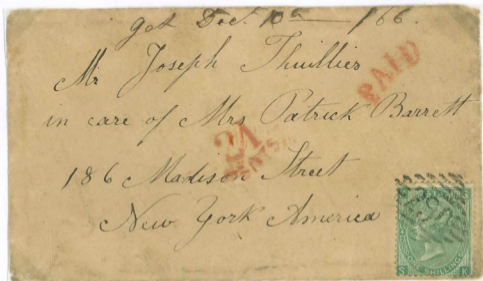 got Dec. 10th 166.
Mr Joseph Thuillier
PAID
in care of Mrs Patrick Barrett
24
186 Madison Street
New York America
S SHILLING K